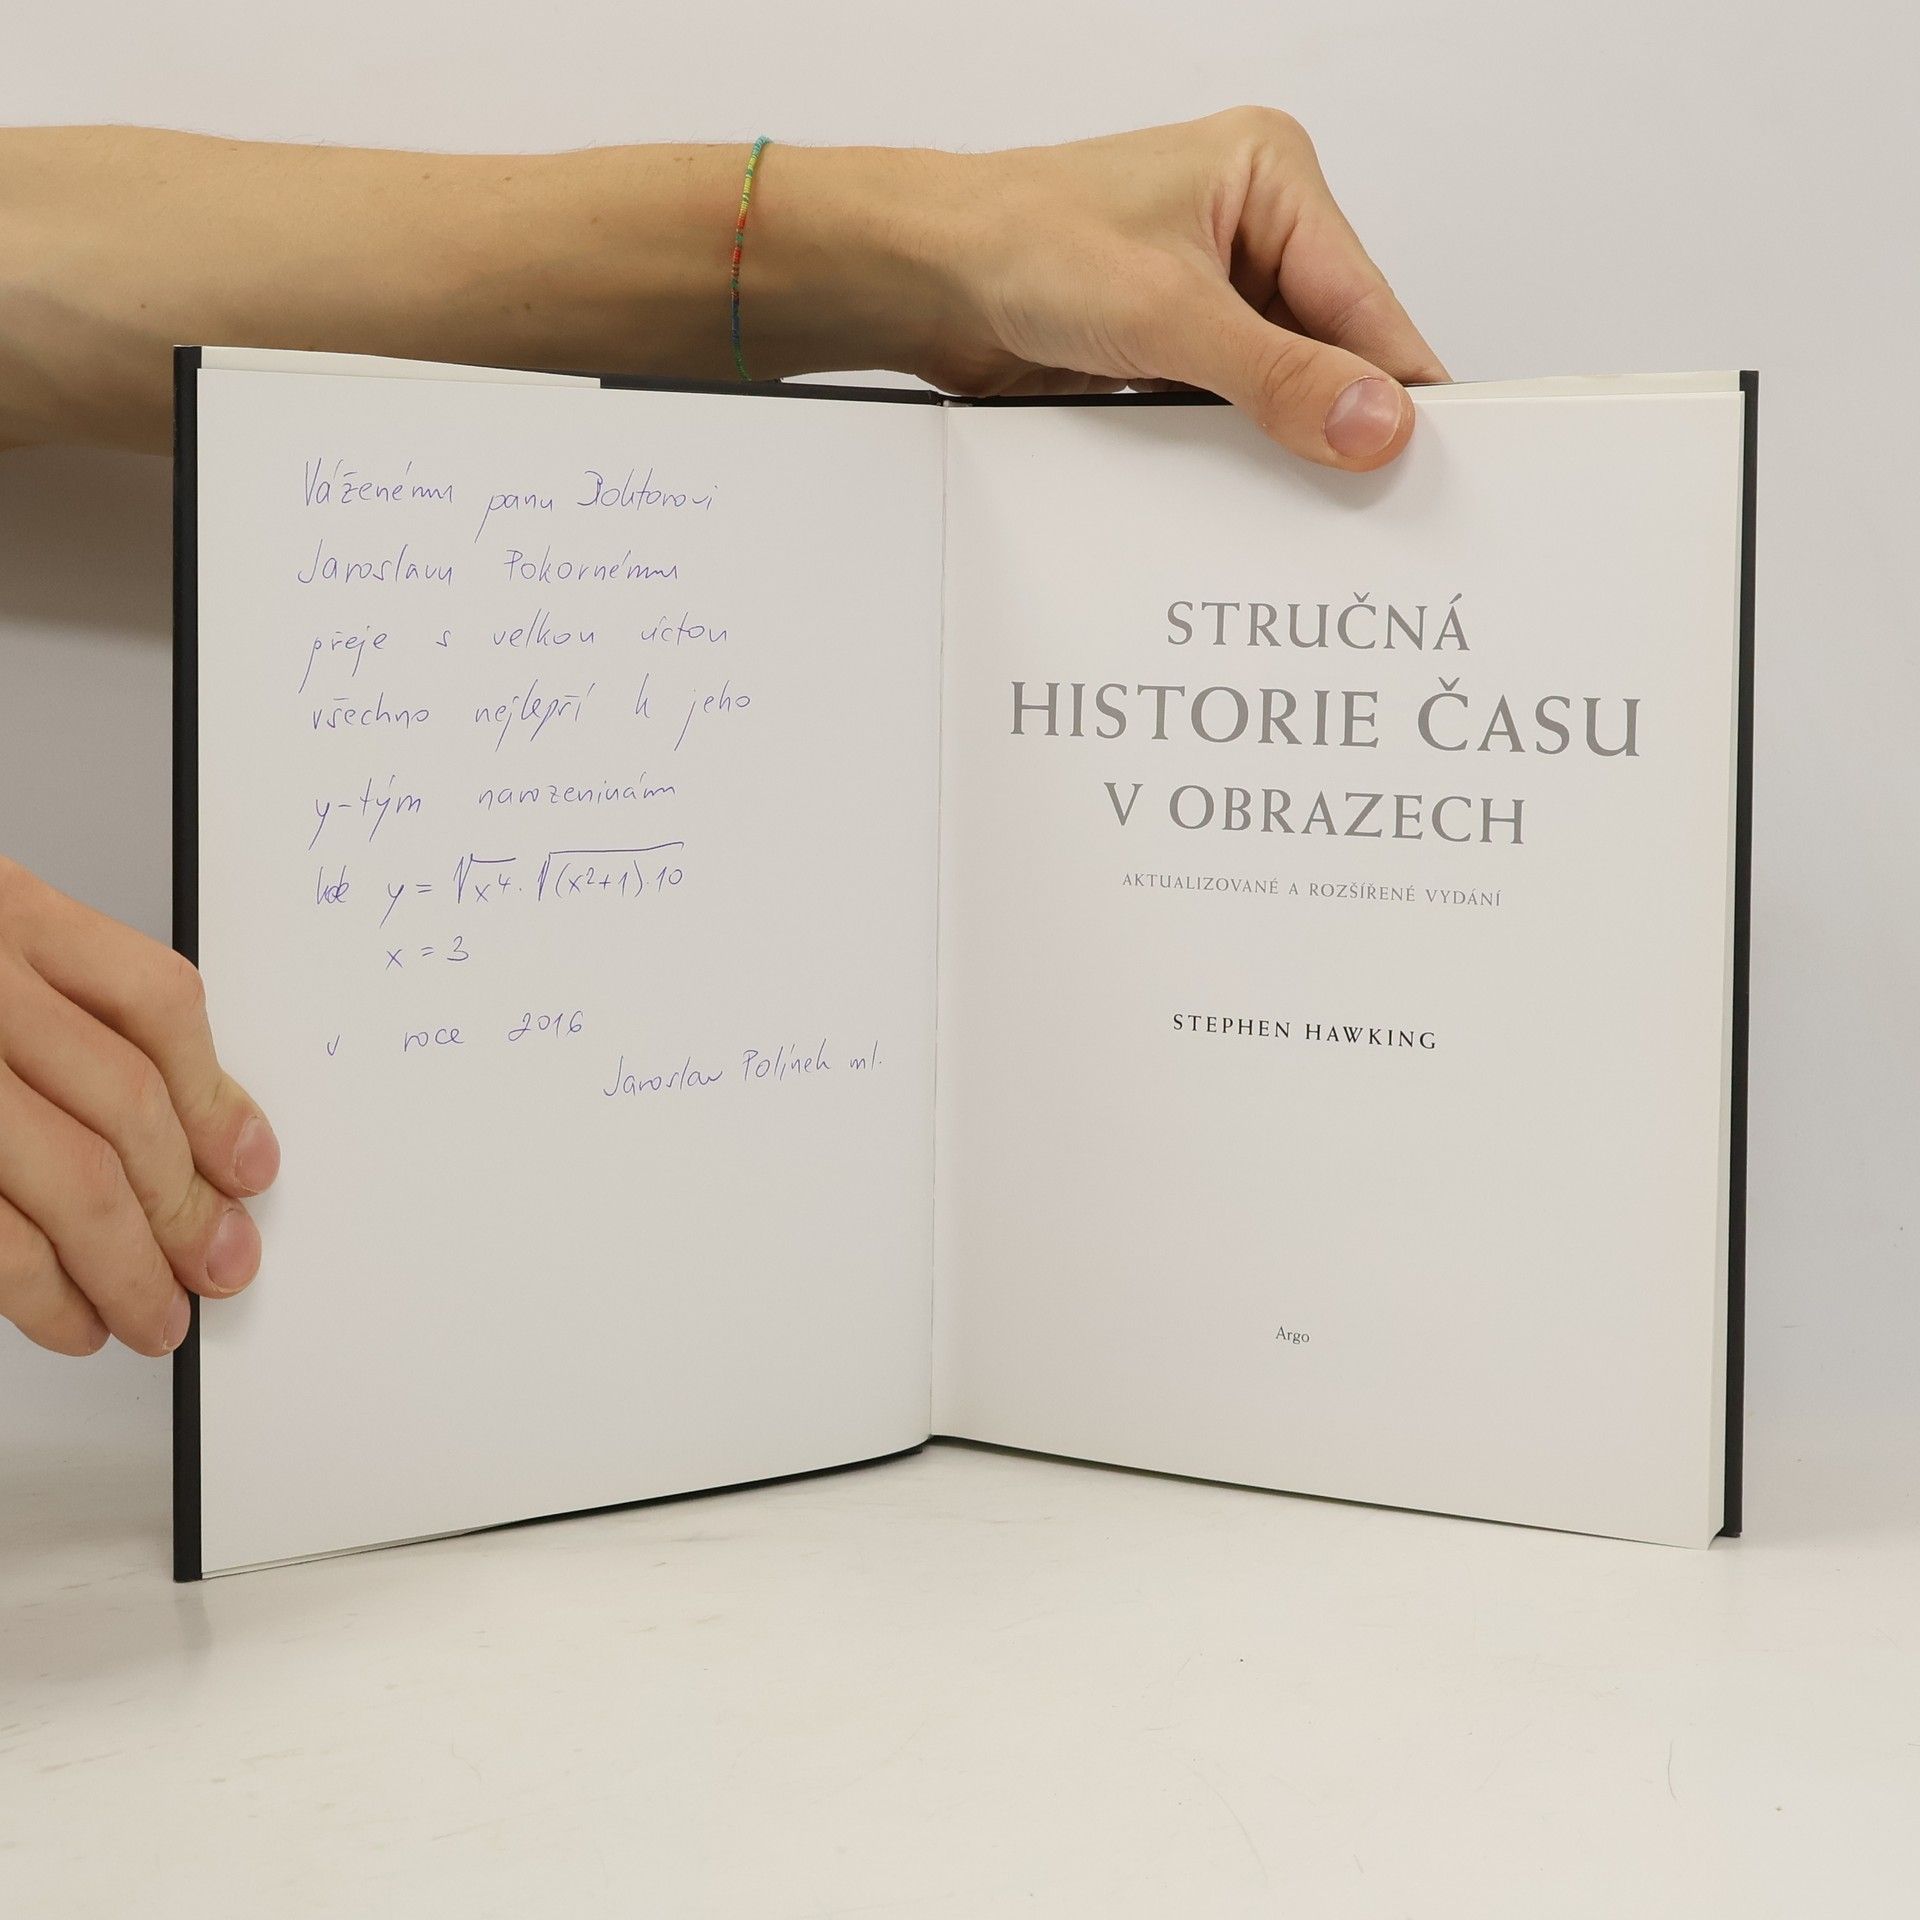 Váženému panu Doktorovi
Jaroslavu Pokornému
přeje s velkou úctou
všechno nejlepší k jeho
y-tým narozeninám
kde y = √x⁴ · √(x²+1)·10
x = 3
v roce 2016
Jaroslav Polínek ml.
STRUČNÁ
HISTORIE ČASU
V OBRAZECH
AKTUALIZOVANÉ A ROZŠÍŘENÉ VYDÁNÍ
STEPHEN HAWKING
Argo